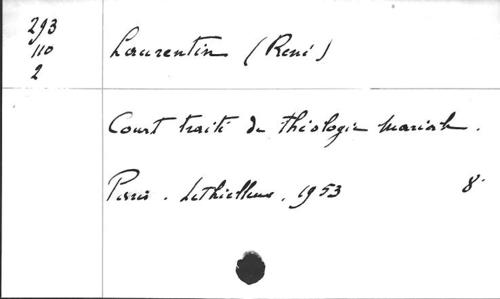 293
110
2
Laurentin (René)
Court traité de théologie mariale.
Paris. Lethielleux, 1953 8°